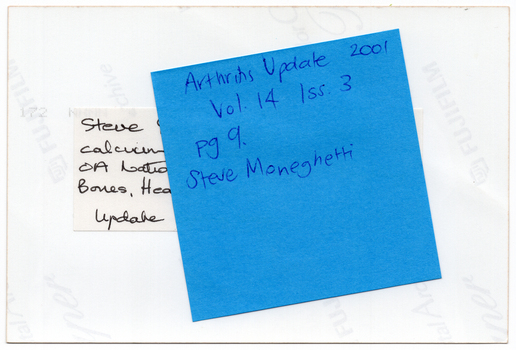 Arthritis Update 2001
Vol. 14 Iss. 3
pg 9.
Steve Moneghetti
Steve
calcium
OA Natio
Bones, Hea
Update
172
FUJIFILM
FUJIFILM